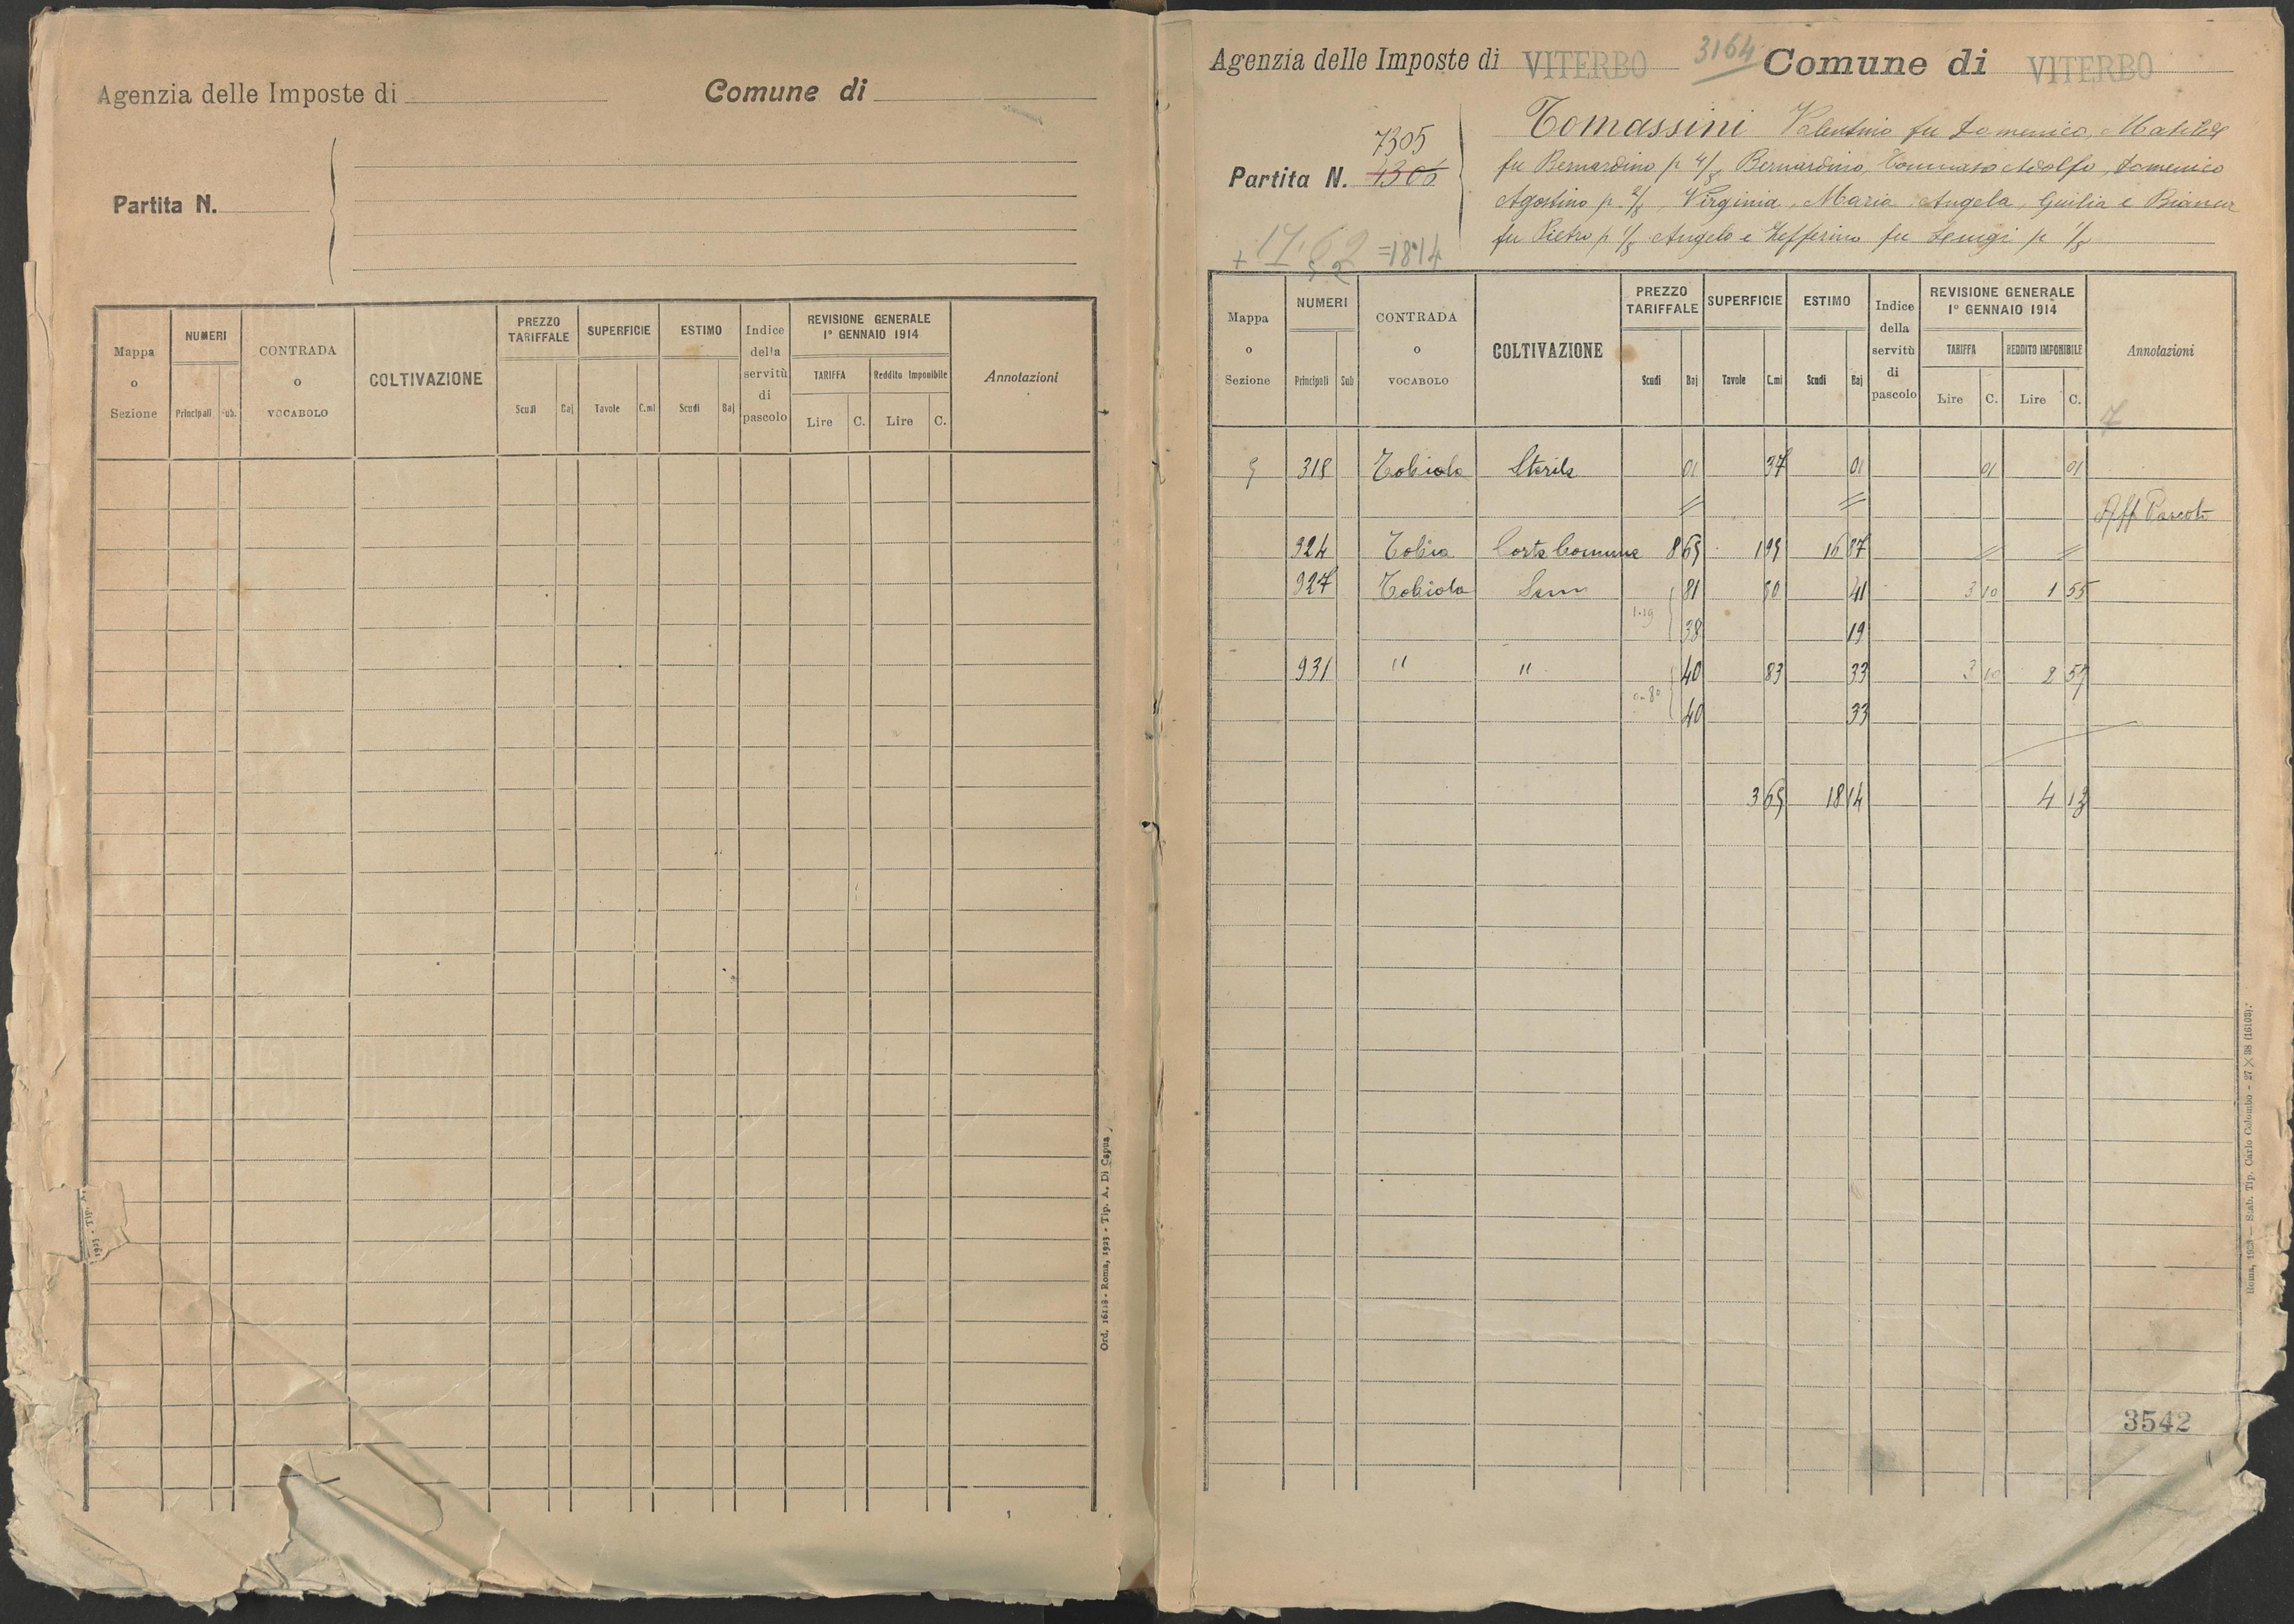 Agenzia delle Imposte di
Comune di
Partita N.
Mappa o Sezione
NUMERI
Principali
Sub.
CONTRADA o VOCABOLO
COLTIVAZIONE
PREZZO TARIFFALE
Scudi Baj
SUPERFICIE
Tavole C.mi
ESTIMO
Scudi Baj
Indice della servitù di pascolo
REVISIONE GENERALE
1° GENNAIO 1914
TARIFFA
Lire C.
Reddito Imponibile
Lire C.
Annotazioni
1923 - Tip. A.
Ord. 16118 - Roma, 1923 - Tip. A. Di Capua
Agenzia delle Imposte di VITERBO 3164 Comune di VITERBO
7305
Partita N. 4306
Tomassini Valentino fu Domenico, Matilde
fu Bernardino p 4/8 Bernardino, Tommaso Adolfo, Domenico
Agostino p. 2/8, Virginia, Maria Angela, Giulia e Bianca
fu Pietro p 1/8 Angelo e Zefferino fu Luigi p 1/8
=1814
Mappa o Sezione
NUMERI
Principali Sub
CONTRADA o VOCABOLO
COLTIVAZIONE
PREZZO TARIFFALE
Scudi Baj
SUPERFICIE
Tavole C.mi
ESTIMO
Scudi Baj
Indice della servitù di pascolo
REVISIONE GENERALE
1° GENNAIO 1914
TARIFFA
Lire C.
REDDITO IMPONIBILE
Lire C.
Annotazioni
7
5 318 Tobiola Sterile 01 37 01 01 01
Aff Pascolo
924 Tobia Corte Comune 8 65 1 95 16 87
927 Tobiola Sem 81 50 41 3 10 1 55
1.19 38 19
931 " " 40 83 33 3 10 2 57
0.80 40 33
3 65 18 14 4 13
3542
Roma, 1923 — Stab. Tip. Carlo Colombo - 27 × 38 (16108).